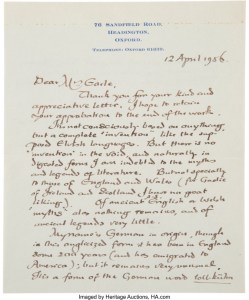 76 SANDFIELD ROAD
HEADINGTON,
OXFORD.
12 April 1956
Dear Mr Earle,
Thank you for your kind and
appreciative letter. I hope to retain
your approbation to the end of the work.
It is not consciously based on anything;
but is a complete 'invention' like the
Elvish languages. But there is no
'invention' in the void, and naturally in
form I am indebted to the myths
and legends of literature. But not specially
to those of England and Wales (for Gaelic
of Ireland and Scotland I have no great
liking). Of ancient English a while
myths also nothing remains, and of
ancient legends very little.
My name is German in origin, though
in this anglicised form it has been in England
some 200 years (and has emigrated to
America); but it remains very unusual.
It is a form of the German word
Imaged by Heritage Auctions, HA.com